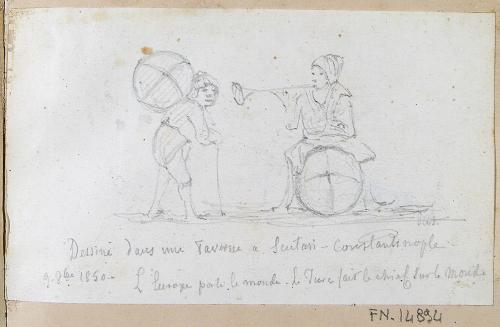 Dessiné dans une Taverne a Scutari - Constantinople
9. 8bre 1850 - L'Europe porte le monde. Le Turc fait le chief sur le monde
FN-14894